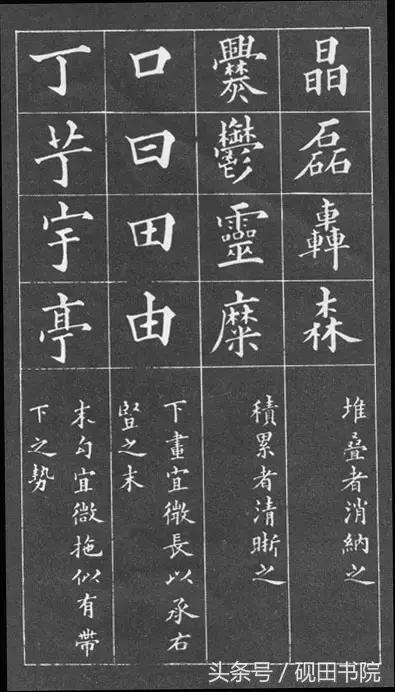 晶磊轟森
堆叠者消納之
爨鬱靈糜
積累者清晰之
口曰田由
下畫宜微長以承右
豎之末
丁芋宇亭
末勾宜微拖似有帶
下之勢
头条号/砚田书院